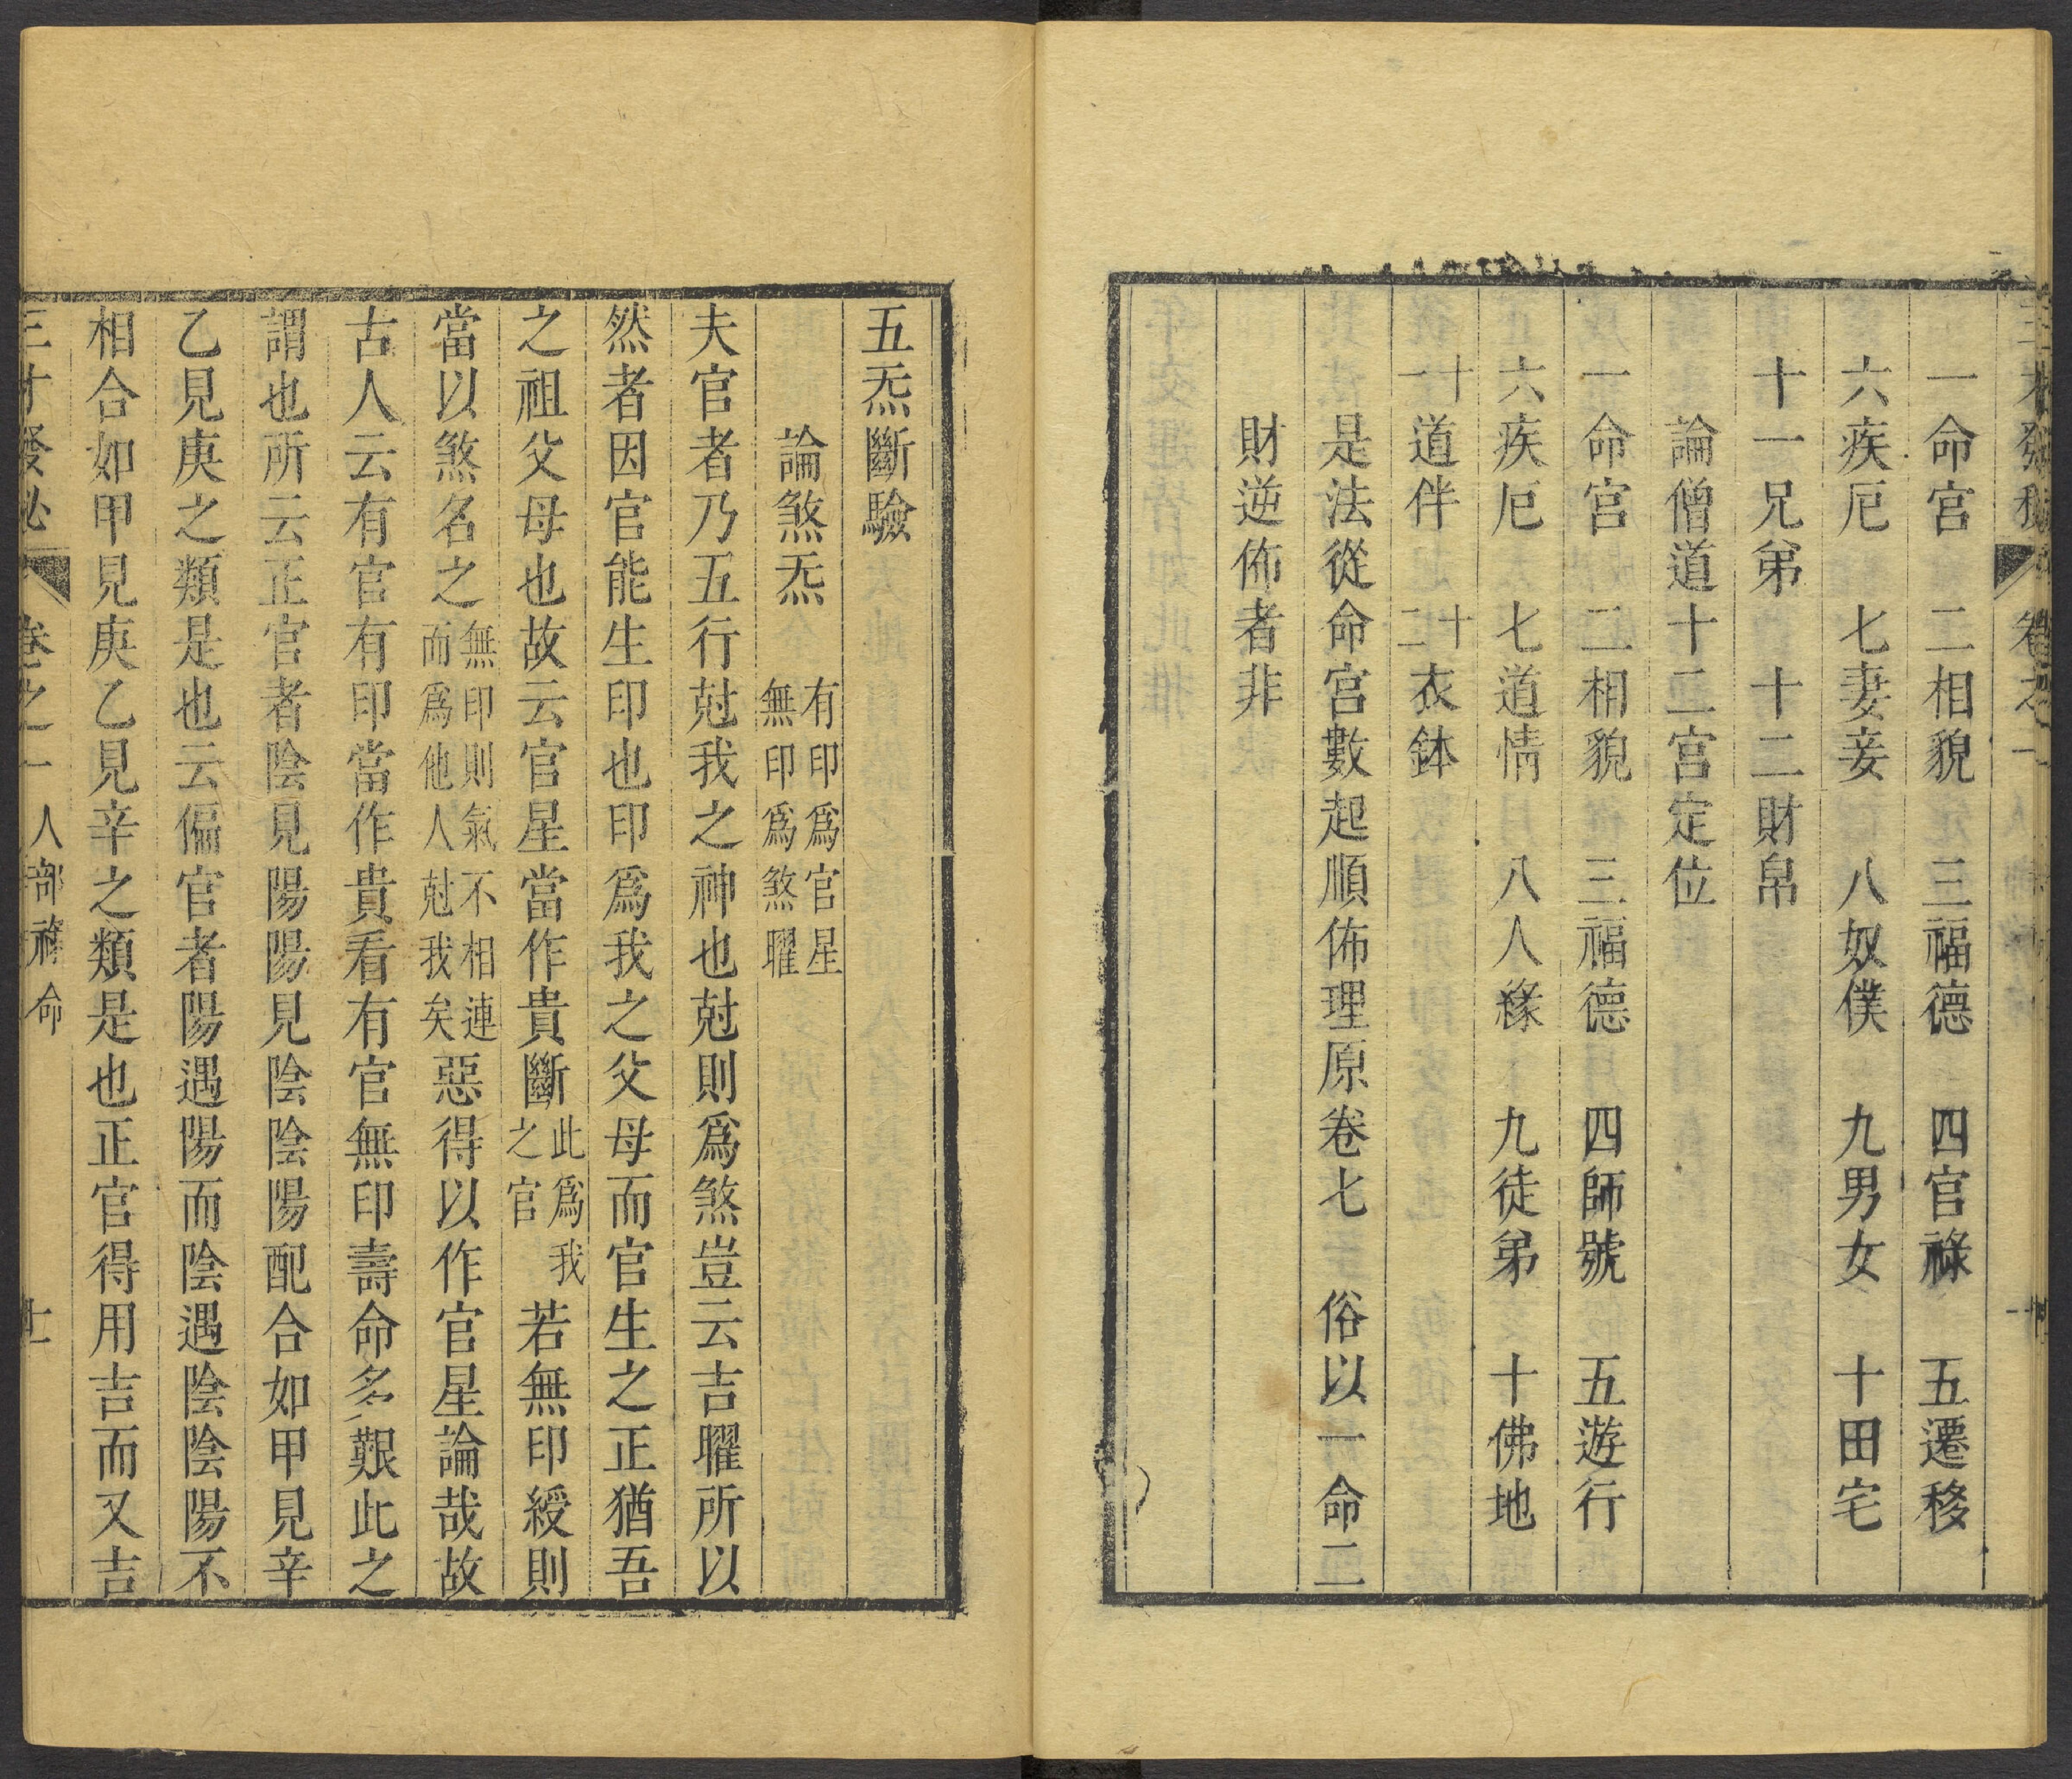 一命宫　二相貌　三福德　四官祿　五遷移
六疾厄　七妻妾　八奴僕　九男女　十田宅
十一兄弟　十二財帛
論僧道十二宫定位
一命宫　二相貌　三福德　四師號　五遊行
六疾厄　七道情　八人緣　九徒弟　十佛地
十一道伴　十二衣鉢
是法從命宫數起順佈理原卷七　俗以一命二
財逆佈者非
五炁斷驗
論煞炁　有印爲官星無印爲煞曜
夫官者乃五行尅我之神也尅則爲煞豈云吉曜所以
然者因官能生印也印爲我之父母而官生之正猶吾
之祖父母也故云官星當作貴斷此爲我之官官若無印綬則
當以煞名之無印則氣不相連而爲他人尅我矣惡得以作官星論哉故
古人云有官有印當作貴看有官無印壽命多艱此之
謂也所云正官者陰見陽陽見陰陰陽配合如甲見辛
乙見庚之類是也云偏官者陽遇陽而陰遇陰陰陽不
相合如甲見庚乙見辛之類是也正官得用吉而又吉
三才發秘　卷之一　人部祿命　十